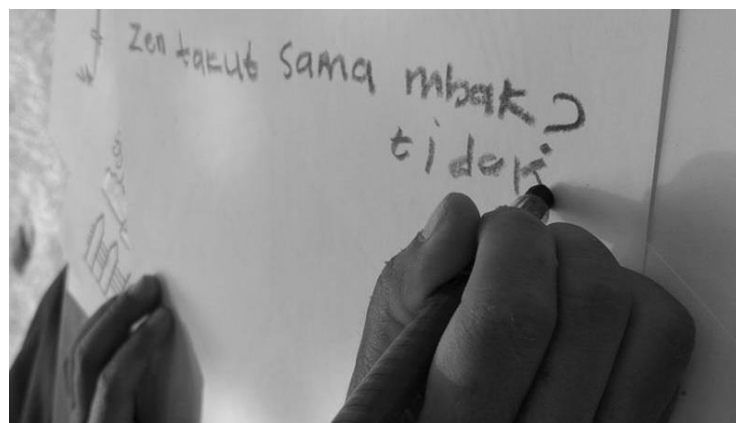 Zen takut sama mbak?
tidak